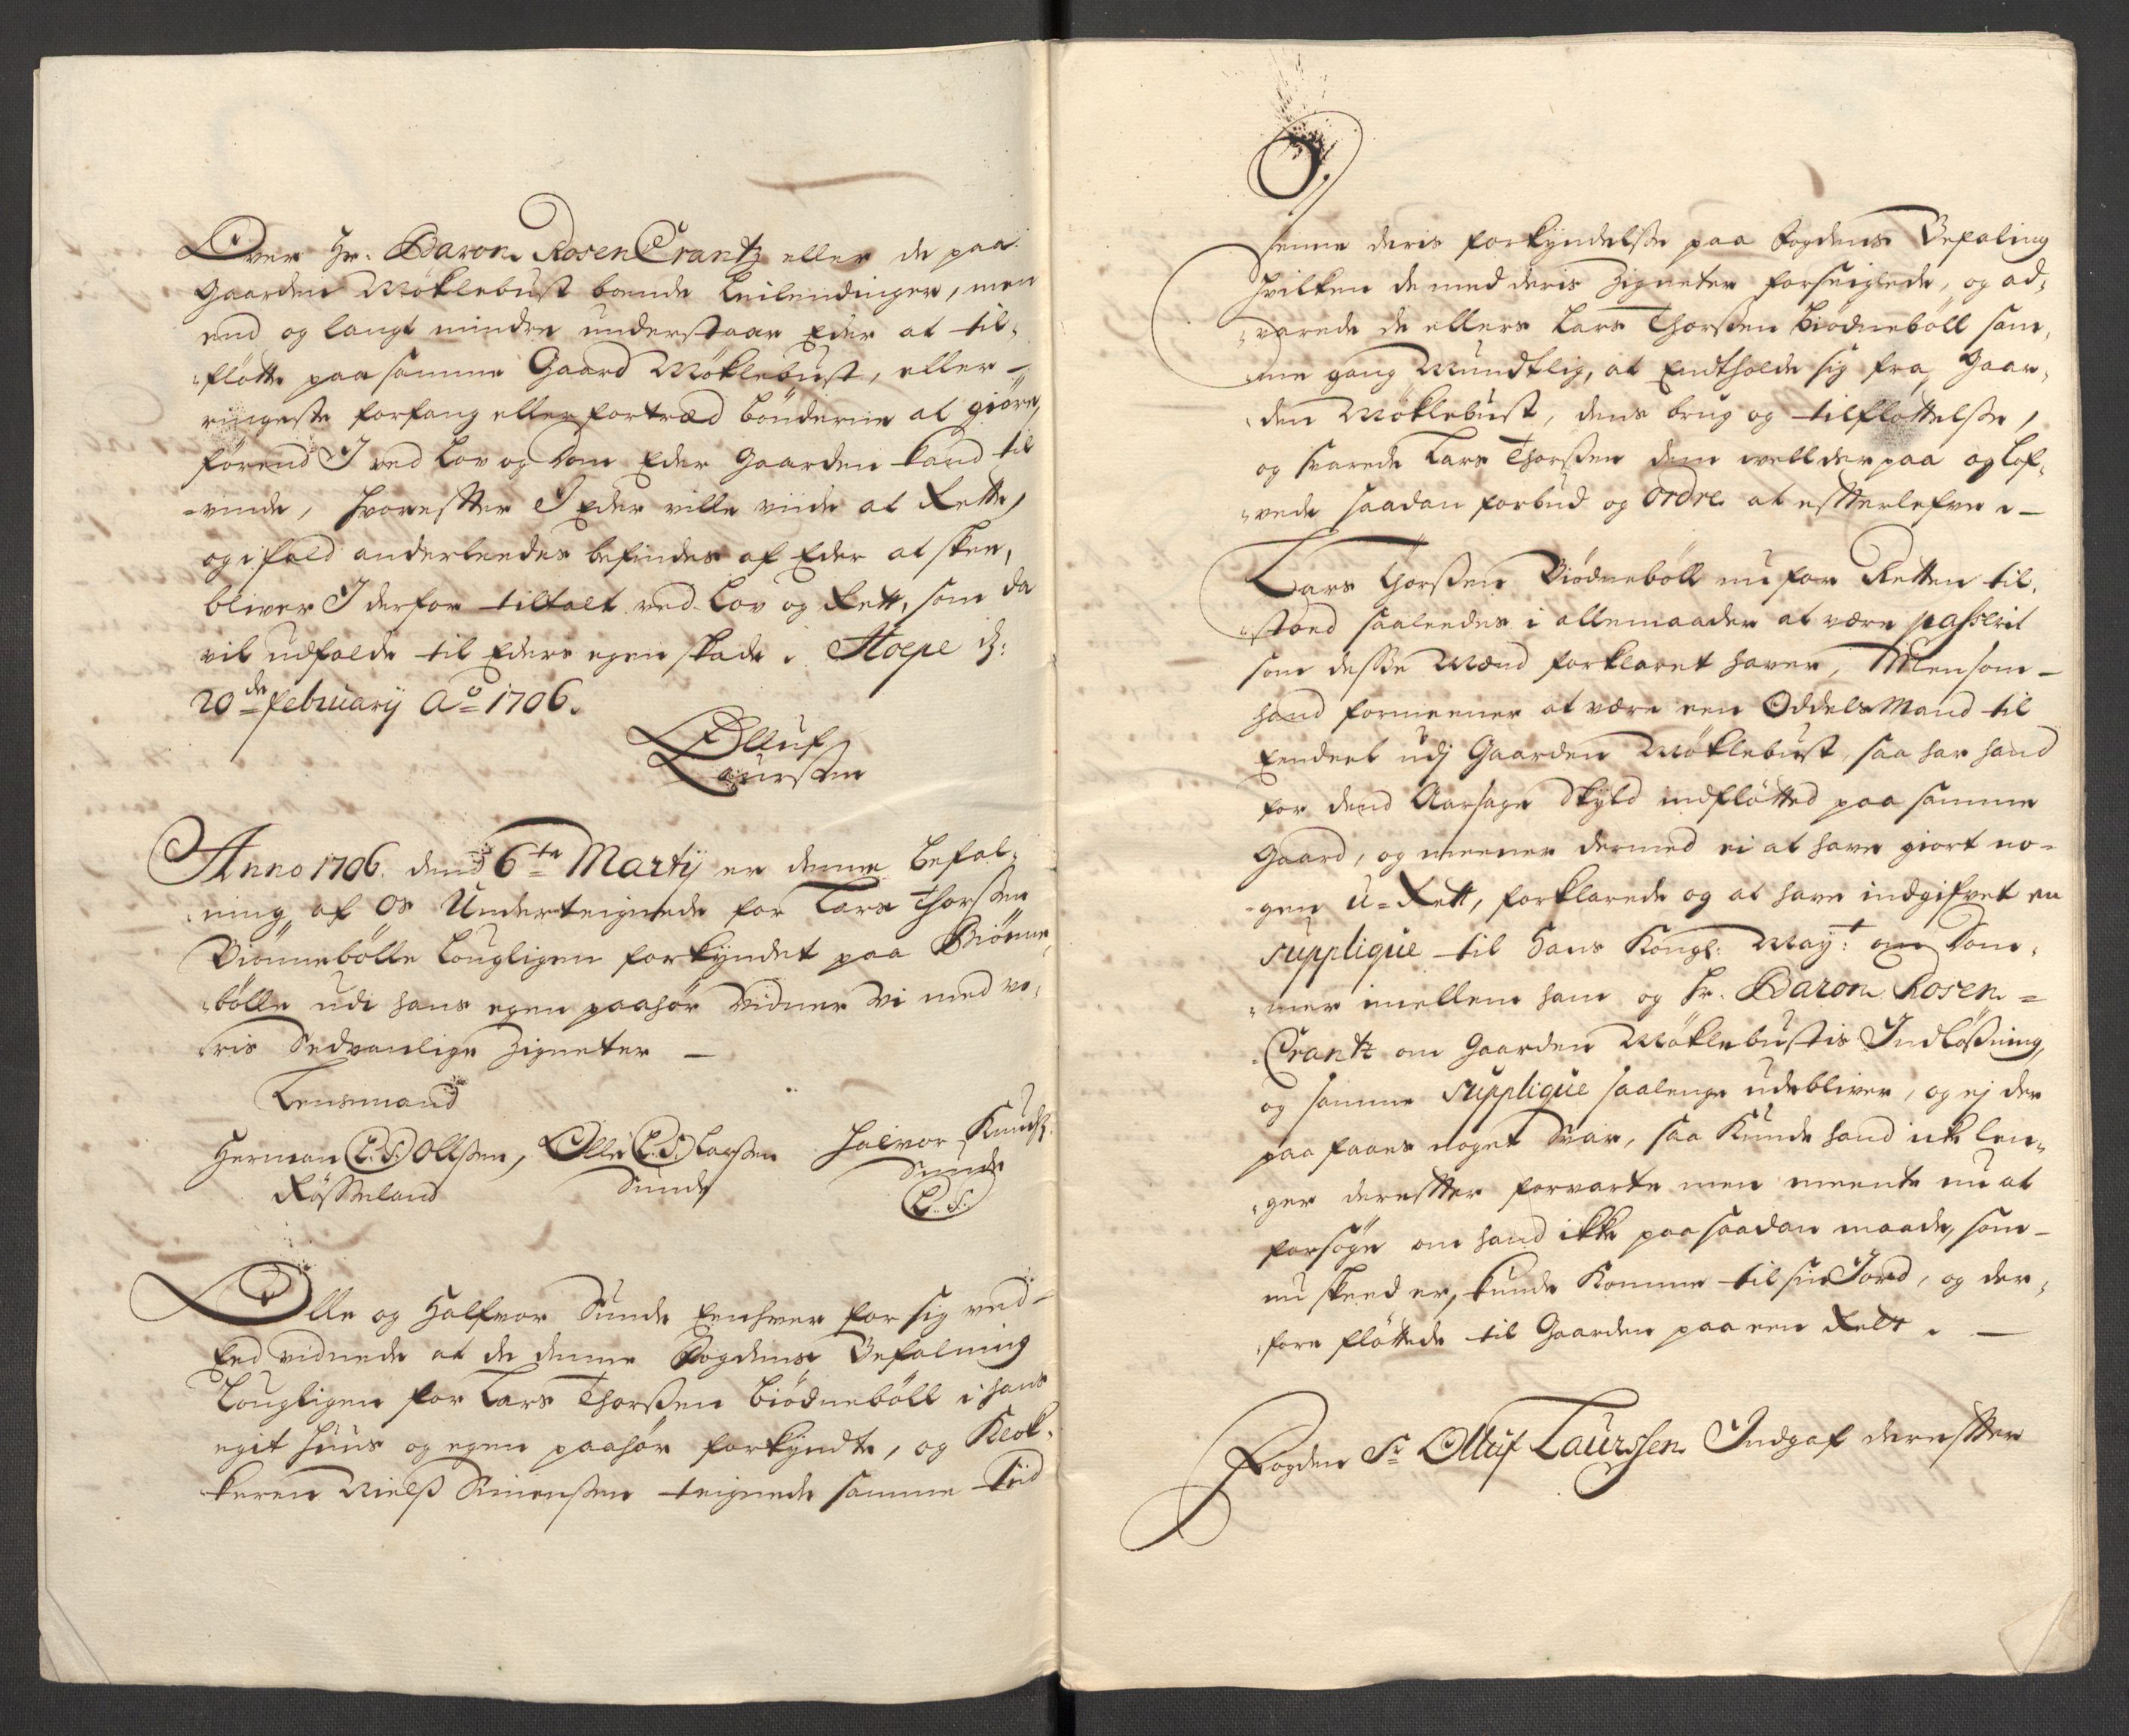 Over Hr. Baron RosenCrantz eller de paa
Gaarden Möklebust boende Leilendinger, men
end og langt mindre understaar Eder at til-
flötte paa samme Gaard Möklebust, eller -
ringeste forfang eller fortræd bönderne at giöre,
förend I ved Lov og Dom Eder Gaarden kand til
-vinde, hvorefter I Eder ville viide at Rette,
og ifald anderleedes befindes af Eder at skee,
bliver I derfor tiltalt ved Lov og Rett, som da
vil udfalde til Eders egen skade. Hoepe d:
20de february Ao 1706.
Olluf
Laurssen
Anno 1706. dend 6te Martij er denne Befal-
-ning af Os Underteignede for Lars Thorssen
Biönnebölle Lougligen forkyndet paa Biönne-
-bölle udi hans egen paahör vidner vi med vo-
-ris Sedvanlige Zigneter -
Lensmand
Herman (L.S.) Ollssen, Olle (L.S.) Larssen Halvor Knuds:
Rösseland Sunde Sunde
(L.S.)
Olle og Halfvor Sunde Eenhver for sig ved-
Eed vidnede at de denne Fogdens Befalning
Lougligen for Lars Thorssen Biödneböll i hans
egit Huus og egen paahör forkyndte, og Klok-
keren Nielss Simenssen teignede samme Tiid
J.
denne deris forkyndelsse paa Fogdens Befaling
hvilken de med deris Zigneter forseiglede, og ad-
-varede de ellers Lars Thorssen Biödneböll sam-
-me gang Mundtlig, at Endtholde sig fra Gaar-
-den Möklebust, dens brug og tilflöttelsse,
og svarede Lars Thorssen dem vell derpaa og lof-
-vede saadan forbud og ordre at efterlefve. -
Lars Thorssen Biödneböll nu for Retten til-
-stoed saaleedes i allemaader at være passerit
som desse Mænd forklaret haver, Men som -
hand formeener at være een Oddels Mand til
Eendeel udj Gaarden Möklebust, saa har hand
for dend Aarsage Skyld indflötted paa samme
Gaard, og meener dermed ei at have giort no-
-gen U-Rett, forklarede og at have indgifvet en
supplique til Hans Kongl: Mayt: om Dom-
-mer imellem ham og Hr. Baron Rosen-
-Crantz om Gaarden Möklebustis Indlössning,
og samme supplique saalenge udebliver, og ej der
paa faaes noget Svar, saa Kunde hand ik len-
-ger derefter forvarte men meente nu at
forsöge om hand ikke paa saadan maade, som -
nu skeed er, kunde Komme til sin Jord, og der-
-fore flöttede til Gaarden paa een Rett. -
Fogden Sr Olluf Laurssen Indgaf derefter